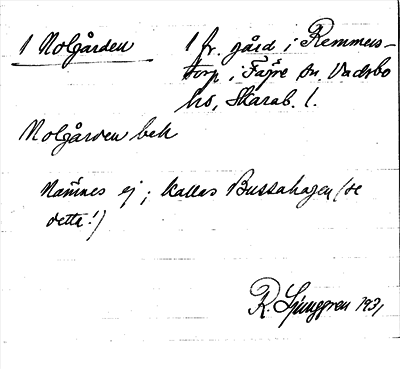 1 Nolgården
1 fr. gård i Remmers-
torp i Fägre sn. Vadsbo
hd, Skarab. l.
Nolgården bek
Nämnes ej; kallas Bussahagen (se
detta!)
R. Ljunggren 1931